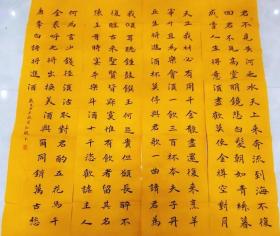 君不見黃河之水天上來奔流到海不復
回君不見高堂明鏡悲白髮朝如青絲暮
成雪人生得意須盡歡莫使金樽空對月
天生我材必有用千金散盡還復來烹羊
宰牛且為樂會須一飲三百杯岑夫子丹
丘生將進酒杯莫停與君歌一曲請君為
我傾耳聽鐘鼓饌玉何足貴但願長醉不
復醒古來聖賢皆寂寞惟有飲者留其名
陳王昔時宴平樂斗酒十千恣歡謔主人
何為言少錢徑須沽取對君酌五花馬千
金裘呼兒將出換美酒與爾同銷萬古愁
李白詩將進酒